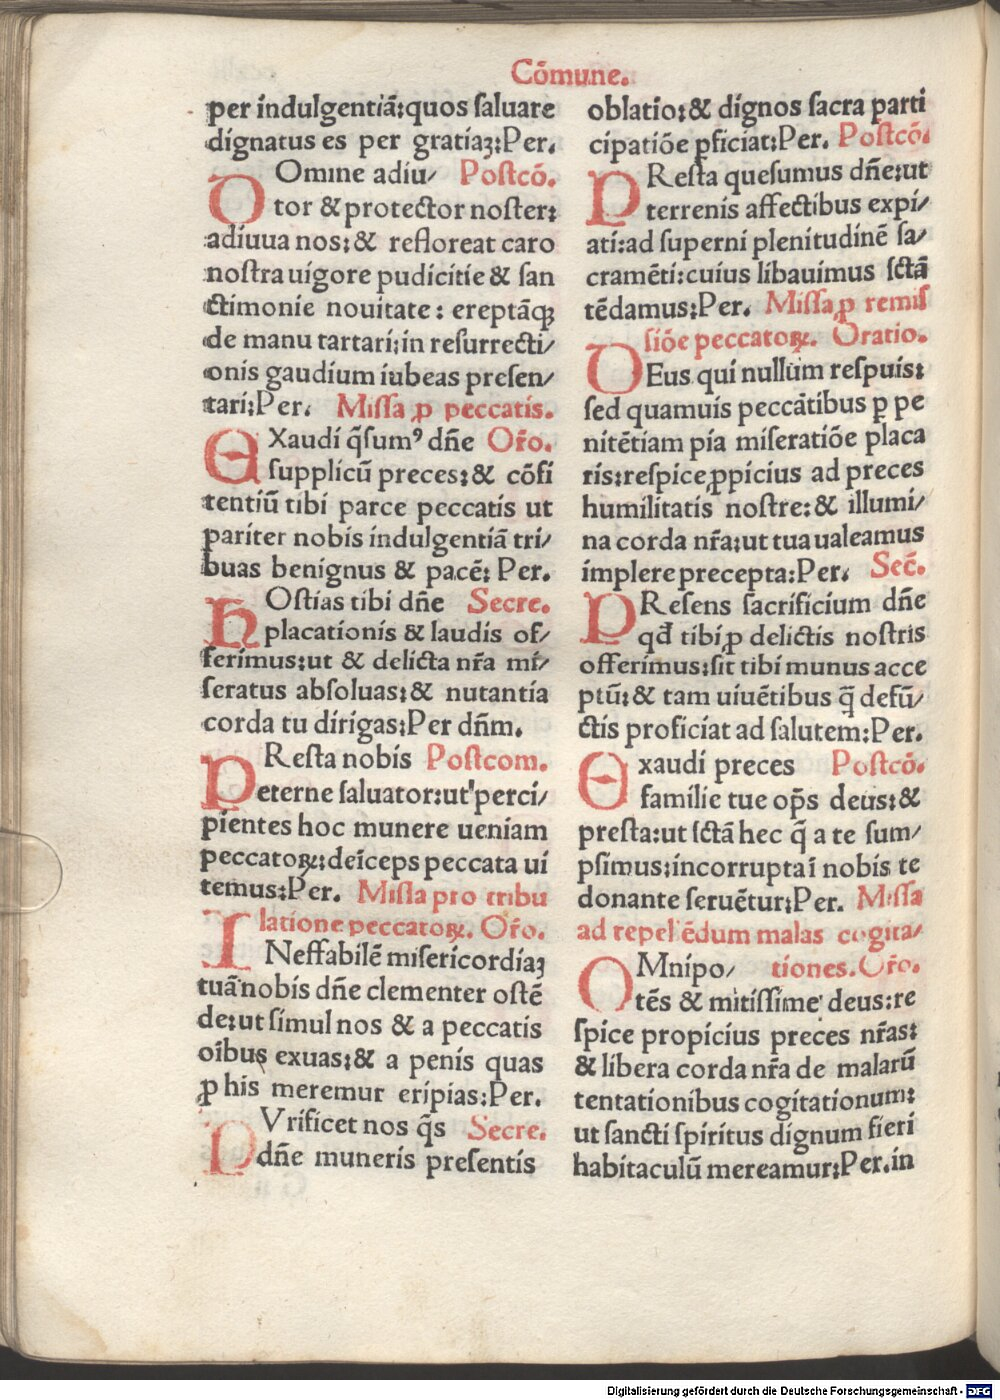 Cõmune.
per indulgentiã:quos saluare
dignatus es per gratiaʒ:Per.
DOmine adiu/ Postcõ.
tor & protector noster:
adiuua nos:& refloreat caro
nostra uigore pudicitie & san
ctimonie nouitate: ereptãqꝫ
de manu tartari:in resurrecti/
onis gaudium iubeas presen/
tari:Per. Missa ꝓ peccatis.
EXaudi q̃sumꝰ dñe Or̃o.
supplicũ preces:& cõfi
tentiũ tibi parce peccatis ut
pariter nobis indulgentiã tri/
buas benignus & pacẽ: Per.
HOstias tibi dñe Secre.
placationis & laudis of/
ferimus:ut & delicta nr̃a mi/
seratus absoluas:& nutantia
corda tu dirigas:Per dñm.
PResta nobis Postcom.
eterne saluator:ut perci/
pientes hoc munere ueniam
peccatoꝝ:deĩceps peccata ui
temus:Per. Missa pro tribu
latione peccatoꝝ. Or̃o.
INeffabilẽ misericordiaʒ
tuã nobis dñe clementer ostẽ
de:ut simul nos & a peccatis
oĩbus exuas:& a penis quas
ꝓ his meremur eripias:Per.
PUrificet nos q̃s Secre.
dñe muneris presentis
oblatio:& dignos sacra parti
cipatiõe ꝑficiat:Per. Postcõ.
PResta quesumus dñe:ut
terrenis affectibus expi/
ati:ad superni plenitudinẽ sa/
cramẽti:cuius libauimus sctã
tẽdamus:Per. Missa ꝓ remis
siõe peccatoꝝ. Oratio.
DEus qui nullum respuis:
sed quamuis peccãtibus ꝑ pe
nitẽtiam pia miseratiõe placa
ris:respice ꝓpicius ad preces
humilitatis nostre:& illumi/
na corda nr̃a:ut tua ualeamus
implere precepta:Per. Sec̃.
PResens sacrificium dñe
qđ tibi ꝓ delictis nostris
offerimus:sit tibi munus acce
ptũ:& tam uiuẽtibus q̃ defũ/
ctis proficiat ad salutem:Per.
Exaudi preces Postcõ.
familie tue op̃s deus:&
presta:ut sctã hec q̃ a te sum/
psimus:incorrupta ĩ nobis te
donante seruẽtur:Per. Missa
ad repellẽdum malas cogita/
OMnipo/ tiones.Or̃o.
tẽs & mitissime deus:re
spice propicius preces nr̃as:
& libera corda nr̃a de malarũ
tentationibus cogitationum:
ut sancti spiritus dignum fieri
habitaculũ mereamur:Per.in
Digitalisierung gefördert durch die Deutsche Forschungsgemeinschaft - DFG